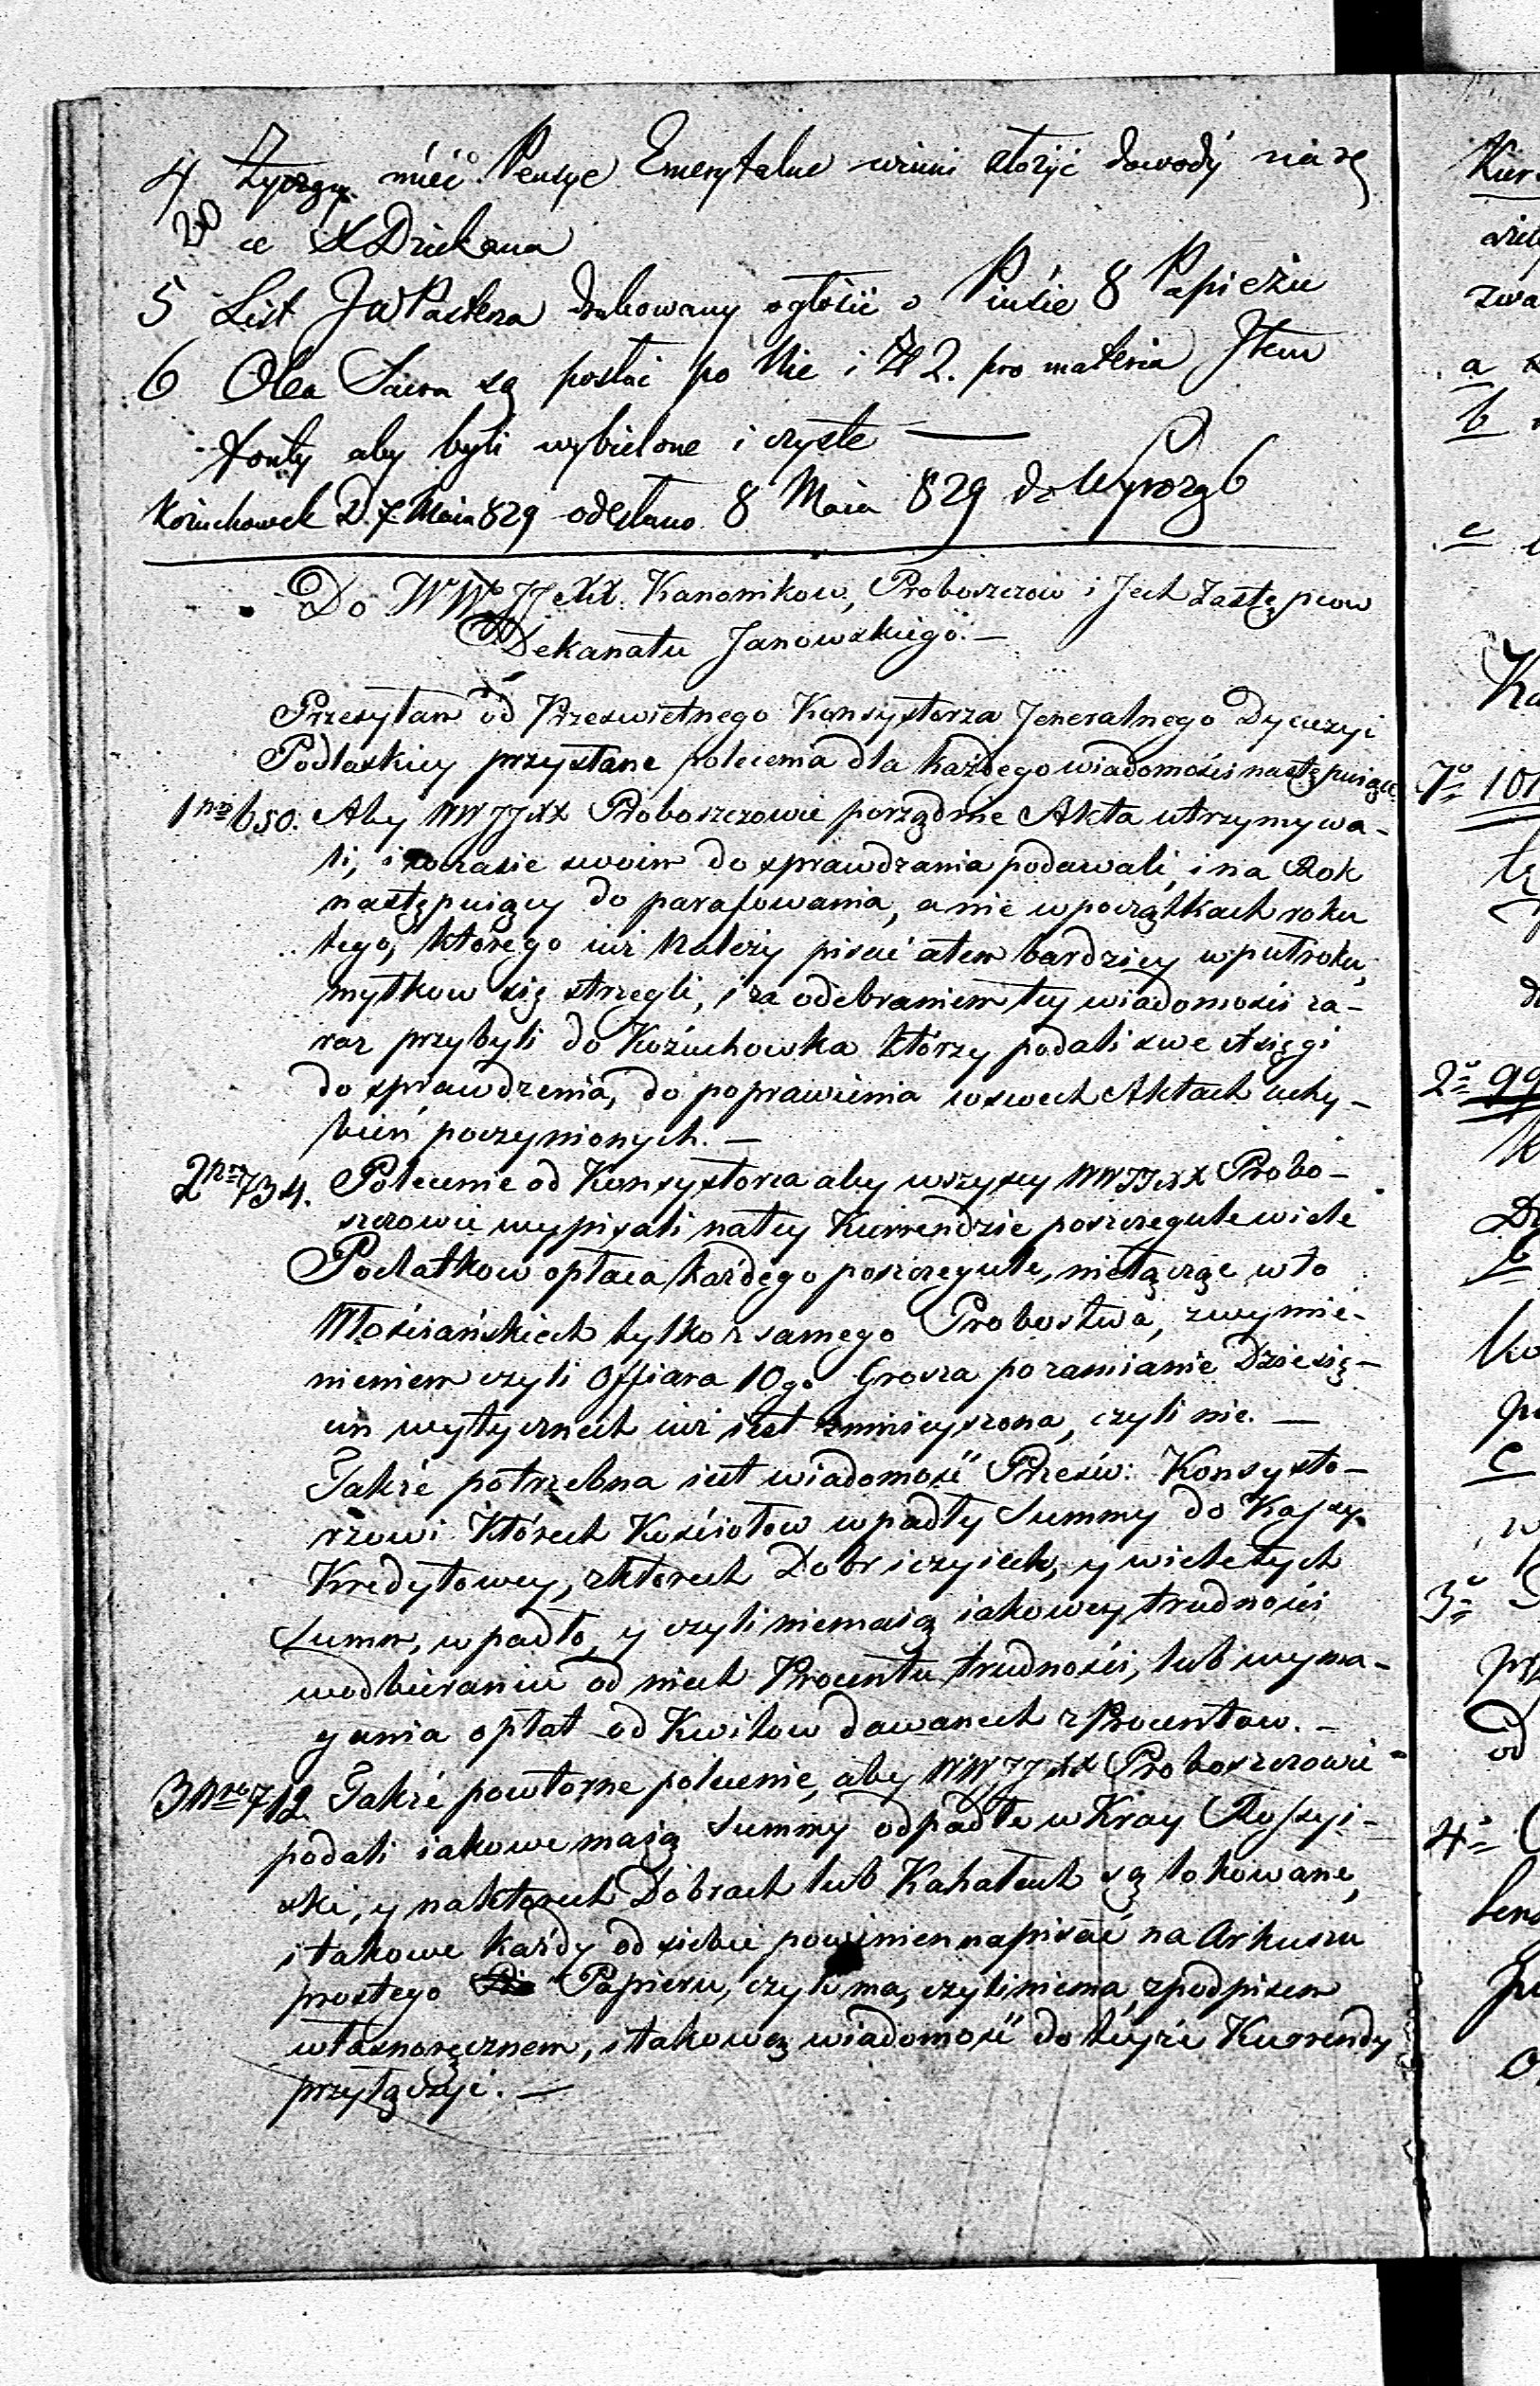 4 Życzący mieć Pensye Emerytalne winni złożyć dowody na rę
20 ce X Dziekana
5 List JW Pasterza drukowany ogłosić o Piusie 8 Papieżu
6 Olea Sacra są posłać po Nie i Zł 2. pro materia Item
fonty aby byli wybielone i czyste —
Koziuchowek D. 7 Maia 829 odesłano 8 Maia 829 do Wyrozęb
Do WW JJ XX. Kanonikow, Proboszczow i Jch Zastępcow
Dekanatu Janowskiego. —
Przesyłam od Przeswietnego Konsystorza Jeneralnego Dyecezyi
Podlaskiey przysłane polecenia dla każdego wiadomości następuiące
1 nro 650. Aby WW JJ XX Proboszczowie porządnie Akta utrzymywa-
li, i w czasie swoim do sprawdzania podawali, i na Rok
następuiący do parafowania, a nie w początkach roku
tego, którego iuż należy pisać a tem bardziey w puł roku,
myłkow się strzegli, i za odebraniem tey wiadomości za-
raz przybyli do Koziuchowka którzy podali swe Księgi
do sprawdzenia, do poprawienia w swech Aktach uchy-
bień poczynionych. —
2 nro 734. Polecenie od Konsystorza aby wszyscy WW JJ XX Probo-
szczowie wypisali na tey Kurrendzie poszczegule wiele
Podatkow opłaca każdego poszczegule, nie łącząc w to
Włościańskich tylko z samego Probostwa, z wymie-
nieniem czyli Offiara 10go Grosza po zamianie Dziesię-
cin wytycznech iuż iest zmnieyszona, czyli nie. —
Także potrzebna iest wiadomość Prześw: Konsysto-
rzowi Którech Kościołow wpadły Summy do Kassy
Kredytowey, z ktorech Dobr i czyiech, y wiele tych
Summ, wpadło, y czyli niemaią iakowey trudności
w odbieraniu od niech Procentu trudności, lub wyma-
gania opłat od Kwitow dawanech z Procentow. —
3 nro 712 Także powtorne polecenie, aby WW JJ XX Proboszczowie
podali iakowe maią Summy odpadłe w Kray Rossyi-
ski, y na ktorech Dobrach lub Kahałach są lokowane,
i takowe każdy od siebie powinien napisać na Arkuszu
prostego Papieru, czyli ma, czyli niema, z podpisem
własnoręcznem, i takową wiadomość do teyże Kurrendy
przyłączyć. —